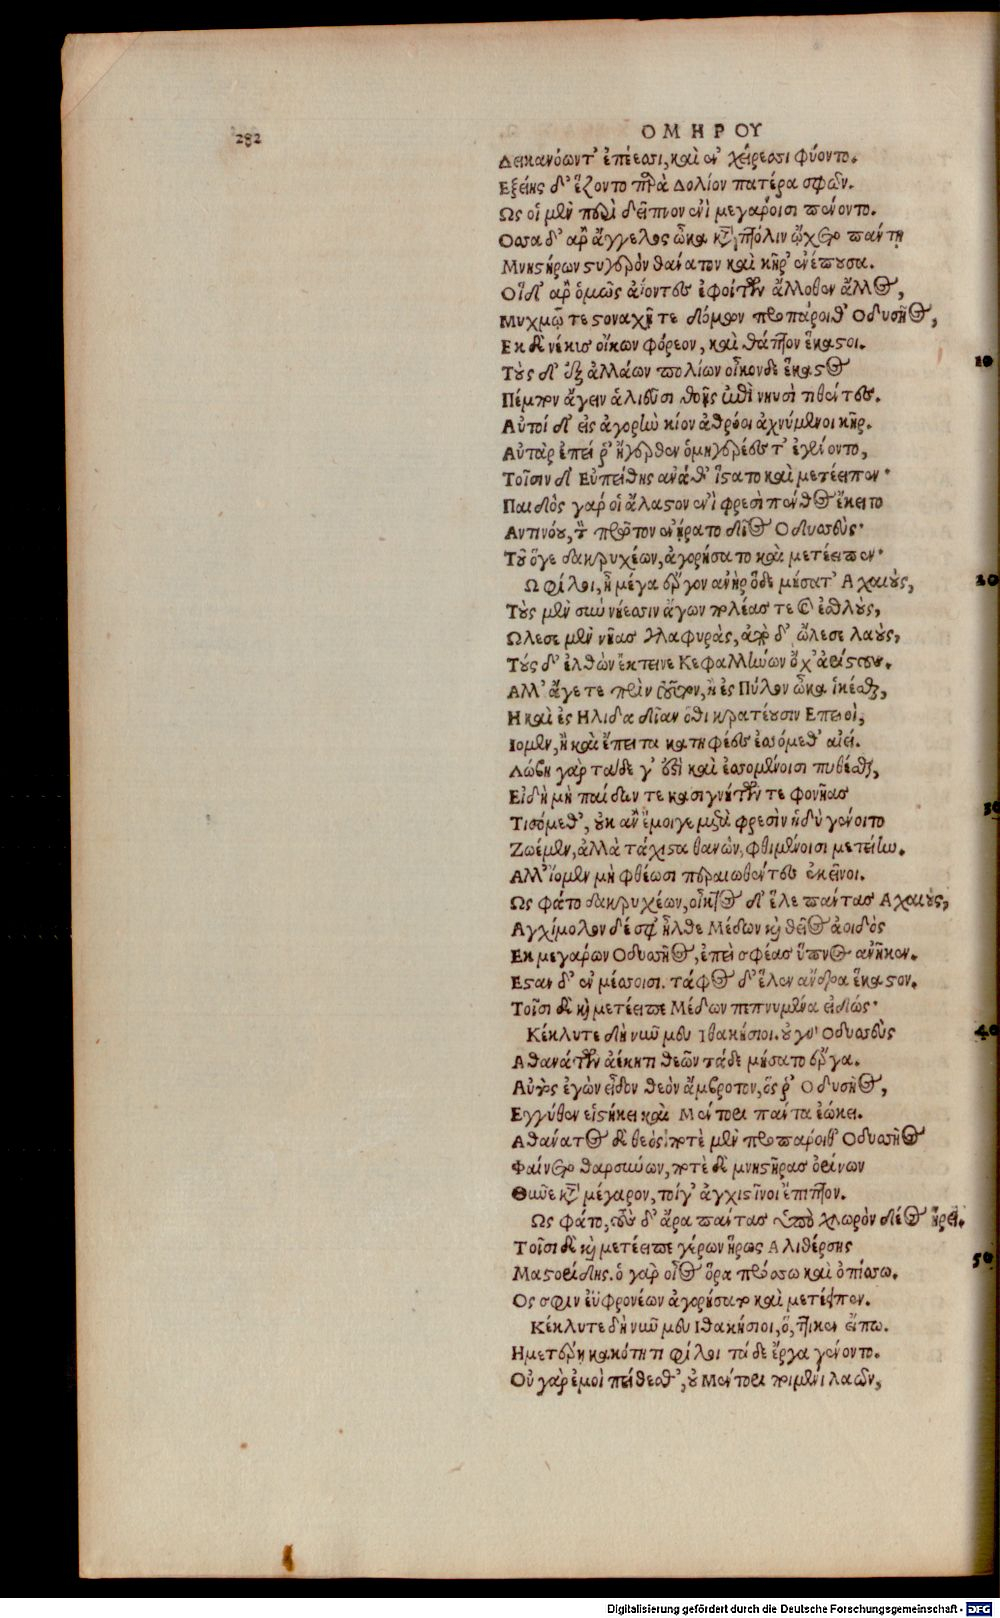 282
ΟΜΗΡΟΥ
Δεικανόωντ' ἐπέεσσι, καὶ ἐν χείρεσσι φύοντο.
Εξείης δ' ἕζοντο παρὰ Δολίον πατέρα σφῶν.
Ως οἱ μὲν περὶ δεῖπνον ἐνὶ μεγάροισι πένοντο.
Οσσα δ' ἄρ' ἄγγελος ὦκα κατὰ πτόλιν ᾤχετο πάντη
Μνηστήρων στυγερὸν θάνατον καὶ κῆρ' ἐνέπουσα.
Οἱ δ' ἄρ' ὁμῶς ἀΐοντες ἐφοίτων ἄλλοθεν ἄλλος,
Μυχμῷ τε στοναχῇ τε δόμων προπάροιθ' Οδυσῆος,
Εκ δὲ νέκυς οἴκων φόρεον, καὶ θάπτον ἕκαστοι.
Τοὺς δ' ἐξ ἀλλάων πολίων οἶκονδε ἕκαστος
Πέμπον ἄγειν ἁλιεῦσι θοῇς ἐπὶ νηυσὶ τιθέντες.
Αὐτοὶ δ' εἰς ἀγορὴν κίον ἀθρόοι ἀχνύμενοι κῆρ.
Αὐτὰρ ἐπεί ῥ' ἤγερθεν ὁμηγερέες τ' ἐγένοντο,
Τοῖσιν δ' Εὐπείθης ἀνά θ' ἵστατο καὶ μετέειπεν·
Παιδὸς γάρ οἱ ἄλαστον ἐνὶ φρεσὶ πένθος ἔκειτο
Αντινόου, τὸν πρῶτον ἐνήρατο δῖος Οδυσσεύς·
Τοῦ ὅγε δακρυχέων, ἀγορήσατο καὶ μετέειπεν·
Ω φίλοι, ἦ μέγα ἔργον ἀνὴρ ὅδε μήσατ' Αχαιοὺς,
Τοὺς μὲν σὺν νήεσσιν ἄγων πολέας τε καὶ ἐσθλοὺς,
Ωλεσε μὲν νῆας γλαφυρὰς, ἀπὸ δ' ὤλεσε λαοὺς,
Τούς δ' ἐλθὼν ἔκτεινε Κεφαλλήνων ὄχ' ἀρίστους.
Αλλ' ἄγετε πρὶν τοῦτον, ἢ ἐς Πύλον ὦκα ἱκέσθαι,
Η καὶ ἐς Ηλιδα δῖαν ὅθι κρατέουσιν Επειοὶ,
Ιομεν, ἢ καὶ ἔπειτα κατηφέες ἐσσόμεθ' αἰεί.
Λώβη γὰρ τάδε γ' ἐστὶ καὶ ἐσσομένοισι πυθέσθαι,
Εἰ δὴ μὴ παίδων τε κασιγνήτων τε φονῆας
Τισόμεθ', οὐκ ἂν ἔμοιγε μετὰ φρεσὶν ἡδὺ γένοιτο
Ζωέμεν, ἀλλὰ τάχιστα θανὼν, φθιμένοισι μετείην.
Αλλ' ἴομεν μὴ φθέωσι περαιωθέντες ἐκεῖνοι.
Ως φάτο δακρυχέων, οἶκτος δ' ἕλε πάντας Αχαιούς,
Αγχίμολον δέ σφ' ἦλθε Μέδων καὶ θεῖος ἀοιδὸς
Εκ μεγάρων Οδυσσῆος, ἐπεὶ σφέας ὕπνος ἀνῆκεν.
Εσταν δ' ἐν μέσσοισι. τάφος δ' ἕλεν ἄνδρα ἕκαστον.
Τοῖσι δὲ καὶ μετέειπε Μέδων πεπνυμένα εἰδώς·
Κέκλυτε δὴ νῦν μευ Ιθακήσιοι. οὐ γὰρ Οδυσσεὺς
Αθανάτων ἀέκητι θεῶν τάδε μήσατο ἔργα.
Αὐτὸς ἐγὼν εἶδον θεὸν ἄμβροτον, ὅς ῥ' Οδυσῆος,
Εγγύθεν εἱστήκει καὶ Μέντορι πάντα ἐῴκει.
Αθάνατος δὲ θεὸς τοτὲ μὲν προπάροιθ' Οδυσσῆος
Φαίνετο θαρσύνων, τοτὲ δὲ μνηστῆρας ὀρίνων
Θῦνε κατὰ μέγαρον, τοὶ γ' ἀγχιστῖνοι ἔπιπτον.
Ως φάτο, τοὺς δ' ἄρα πάντας ὑπὸ χλωρὸν δέος ᾕρει.
Τοῖσι δὲ καὶ μετέειπε γέρων ἥρως Αλιθέρσης
Μαστορίδης. ὁ γὰρ οἶος ὅρα πρόσσω καὶ ὀπίσσω.
Ος σφιν ἐϋφρονέων ἀγορήσατο καὶ μετέειπεν.
Κέκλυτε δὴ νῦν μευ Ιθακήσιοι, ὅ, ττί κεν εἴπω.
Ημετέρῃ κακότητι φίλοι τάδε ἔργα γένοντο.
Οὐ γὰρ ἐμοὶ πείθεσθ', οὐ Μέντορι ποιμένι λαῶν,
10
20
30
40
50
Digitalisierung gefördert durch die Deutsche Forschungsgemeinschaft - DFG